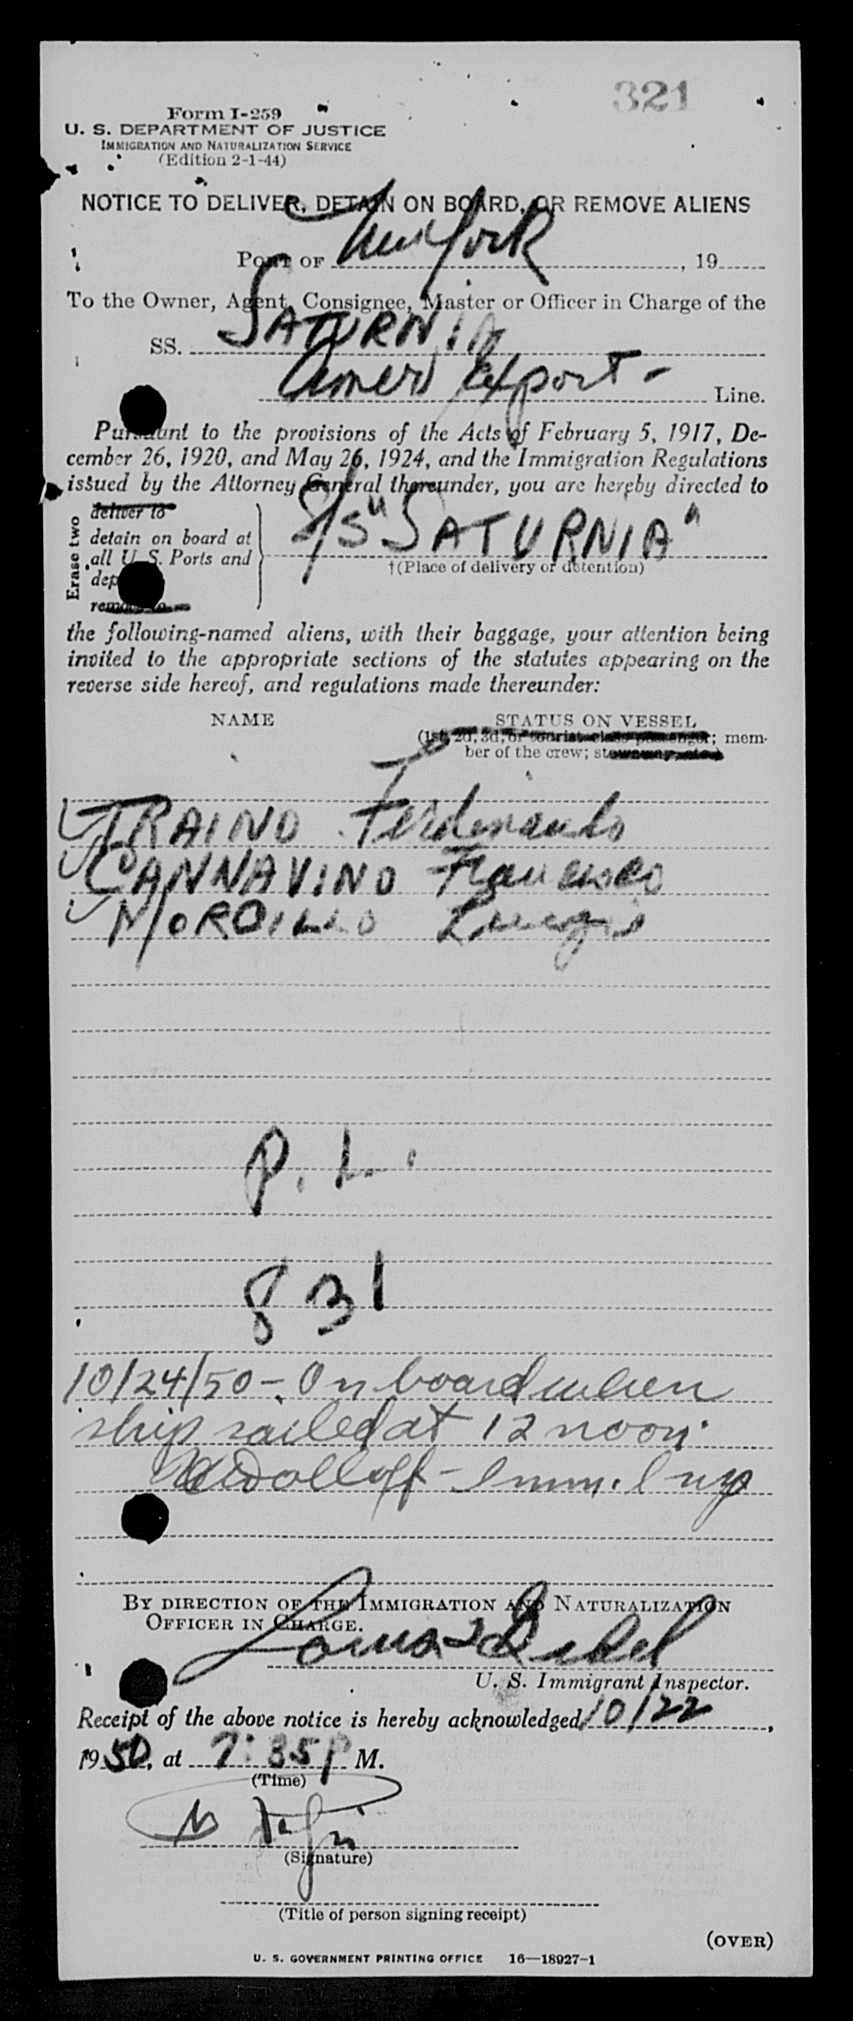 321
Form I-259
U. S. DEPARTMENT OF JUSTICE
IMMIGRATION AND NATURALIZATION SERVICE
(Edition 2-1-44)
NOTICE TO DELIVER, DETAIN ON BOARD, OR REMOVE ALIENS
PORT OF New York, 19
To the Owner, Agent, Consignee, Master or Officer in Charge of the
SS. SATURNIA
Amer Export - Line.
Pursuant to the provisions of the Acts of February 5, 1917, De-
cember 26, 1920, and May 26, 1924, and the Immigration Regulations
issued by the Attorney General thereunder, you are hereby directed to
Erase two
deliver to
detain on board at
all U. S. Ports and
remove to
S/S "SATURNIA"
†(Place of delivery or detention)
the following-named aliens, with their baggage, your attention being
invited to the appropriate sections of the statutes appearing on the
reverse side hereof, and regulations made thereunder:
NAME STATUS ON VESSEL
(1st, 2d, 3d, or tourist-class passenger; mem-
ber of the crew; stowaway, etc.)
TRAINO Ferdinando
CANNAVINO Francesco
MORDILLO Luigi
P. L.
831
10/24/50 - On board when
ship sailed at 12 noon
Imm. Insp
BY DIRECTION OF THE IMMIGRATION AND NATURALIZATION
OFFICER IN CHARGE.
U. S. Immigrant Inspector.
Receipt of the above notice is hereby acknowledged 10/22,
1950, at 7:35 P M.
(Time)
(Signature)
(Title of person signing receipt)
(OVER)
U. S. GOVERNMENT PRINTING OFFICE 16—18927-1